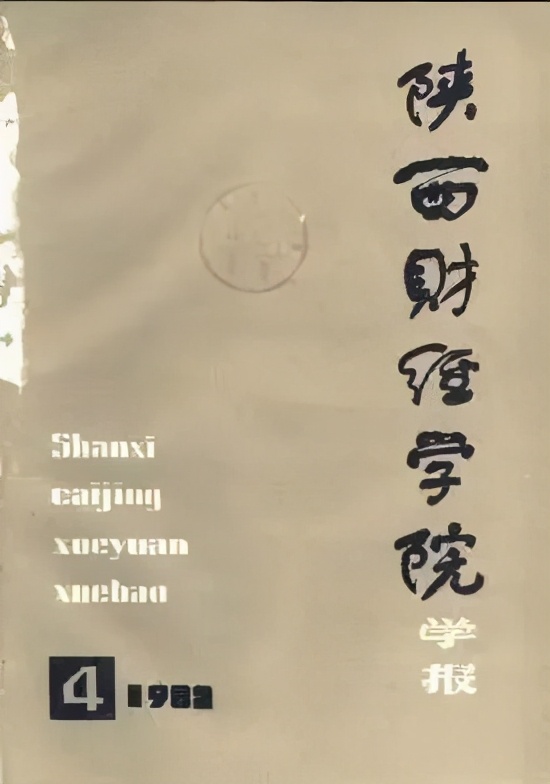 陕西财经学院
学报
Shanxi
caijing
xueyuan
xuebao
4 1982